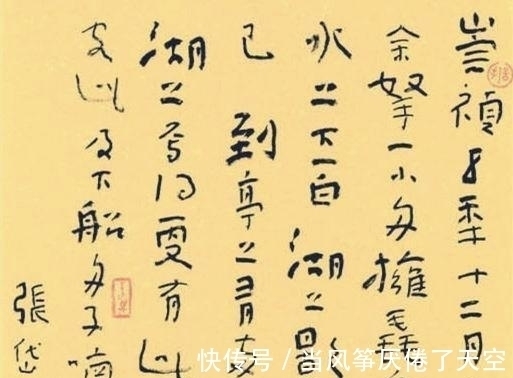 崇禎五秊十二月
余拏一小舟擁毳
水上下一白湖上影
已到亭上有
湖上焉得更有此
客此及下船舟子喃
張岱
快传号 / 当风筝厌倦了天空